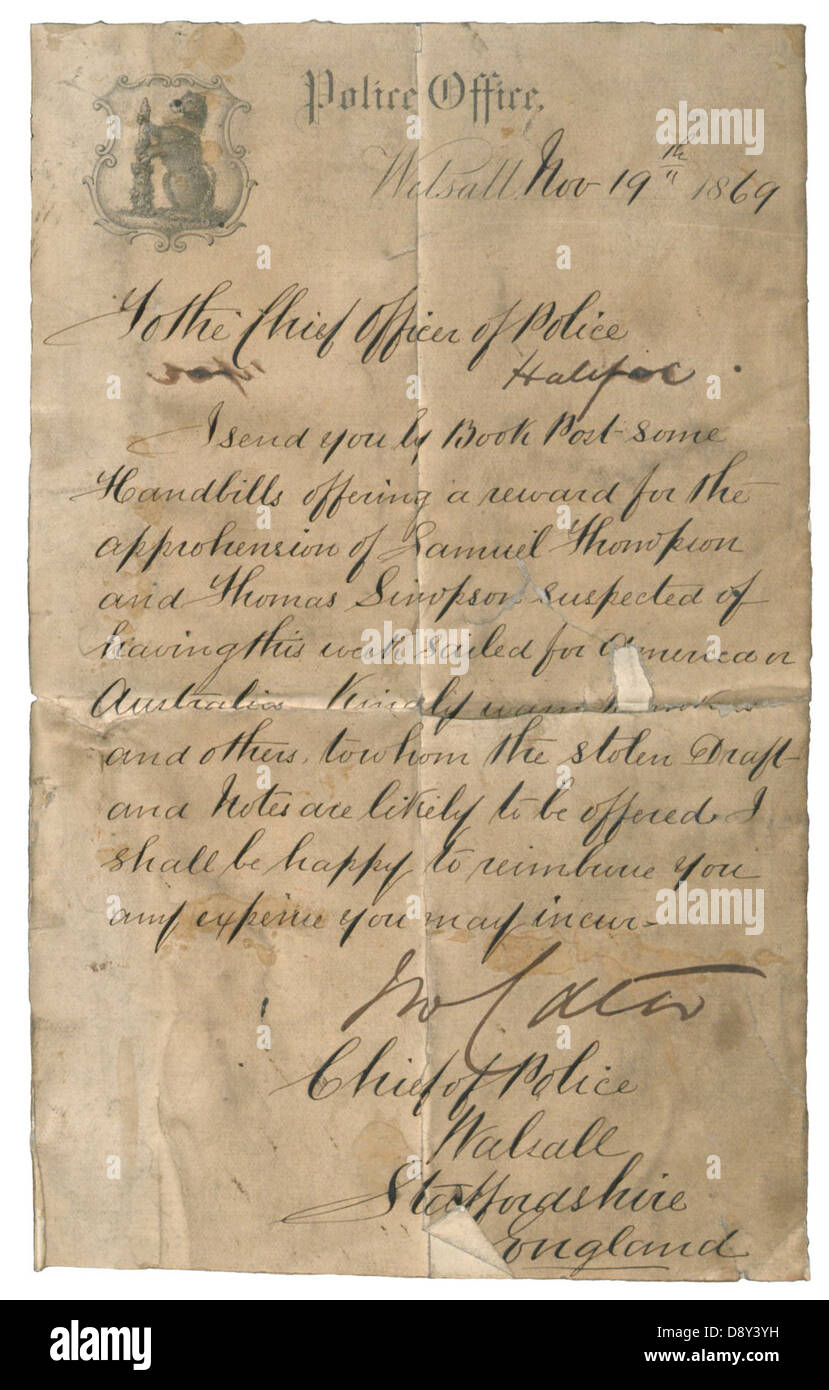 Police Office,
Walsall, Nov 19th 1869
To the Chief Officer of Police
Halifax.
I send you by Book Post some
Handbills offering a reward for the
apprehension of Samuel Thompson
and Thomas Simpson suspected of
having this week sailed for America or
Australia Kindly warn
and others, to whom the stolen Draft
and Notes are likely to be offered. I
shall be happy to reimburse you
any expense you may incur
Jno Cater
Chief of Police
Walsall
Staffordshire
England
alamy
www.alamy.com
Image ID: D8Y3YH